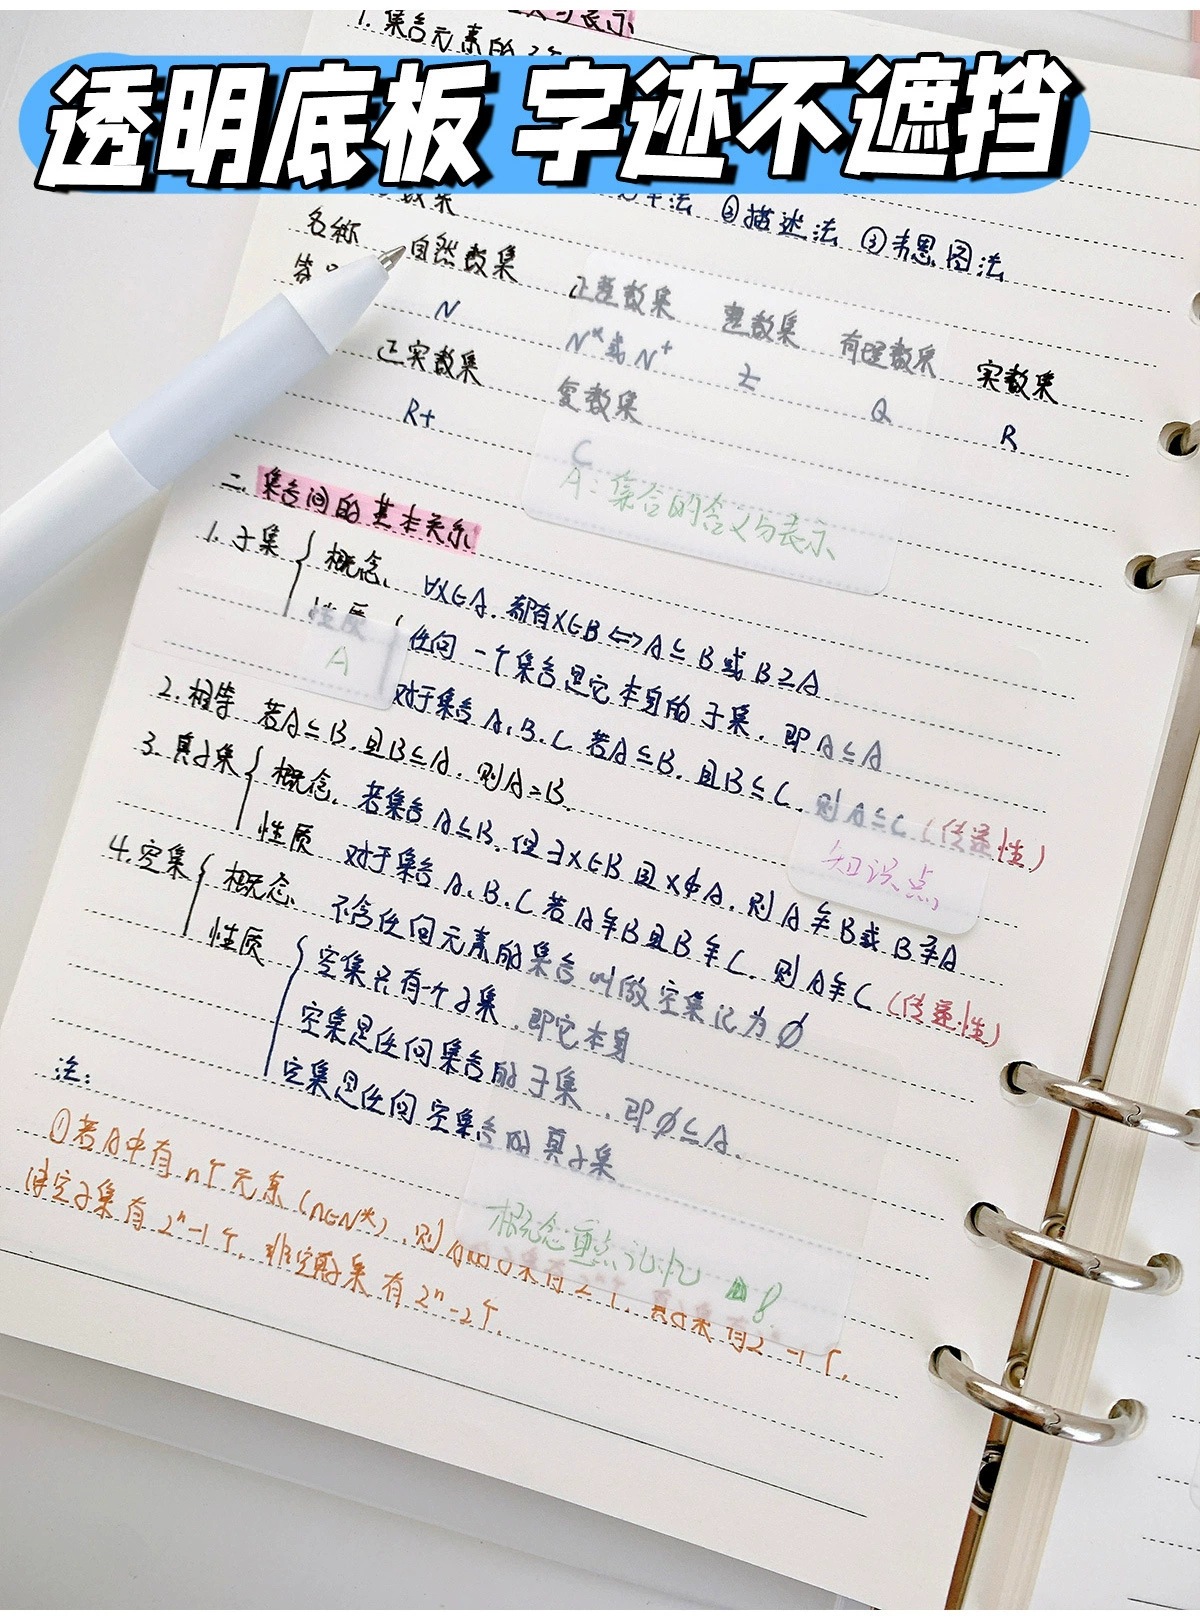 透明底板 字迹不遮挡
与表示
1.集合元素的
数集 ②描述法 ③韦恩图法
名称 自然数集 正整数集 整数集 有理数集 实数集
N N*或N⁺ Z Q R
正实数集 复数集
R+ C
A:集合的含义与表示
二.集合间的基本关系
1.子集 概念. ∀x∈A.都有x∈B⇔A⊆B或B⊇A
性质 任何一个集合是它本身的子集.即A⊆A
A
对于集合A.B.C.若A⊆B.且B⊆C.则A⊆C(传递性)
2.相等 若A⊆B.且B⊆A.则A=B.
知识点
3.真子集 概念.若集合A⊆B.但∃x∈B且x∉A.则A⫋B或B⫌A
性质 对于集合A.B.C若A⫋B且B⫋C.则A⫋C(传递性)
4.空集 概念. 不含任何元素的集合叫做空集记为∅
性质 空集只有一个子集.即它本身
空集是任何集合的子集.即∅⊆A.
空集是任何空集合的真子集
注:
概念重点记忆
①若A中有n个元素(n∈N*).则
非空子集有2ⁿ-1个.非空真子集有2ⁿ-2个.